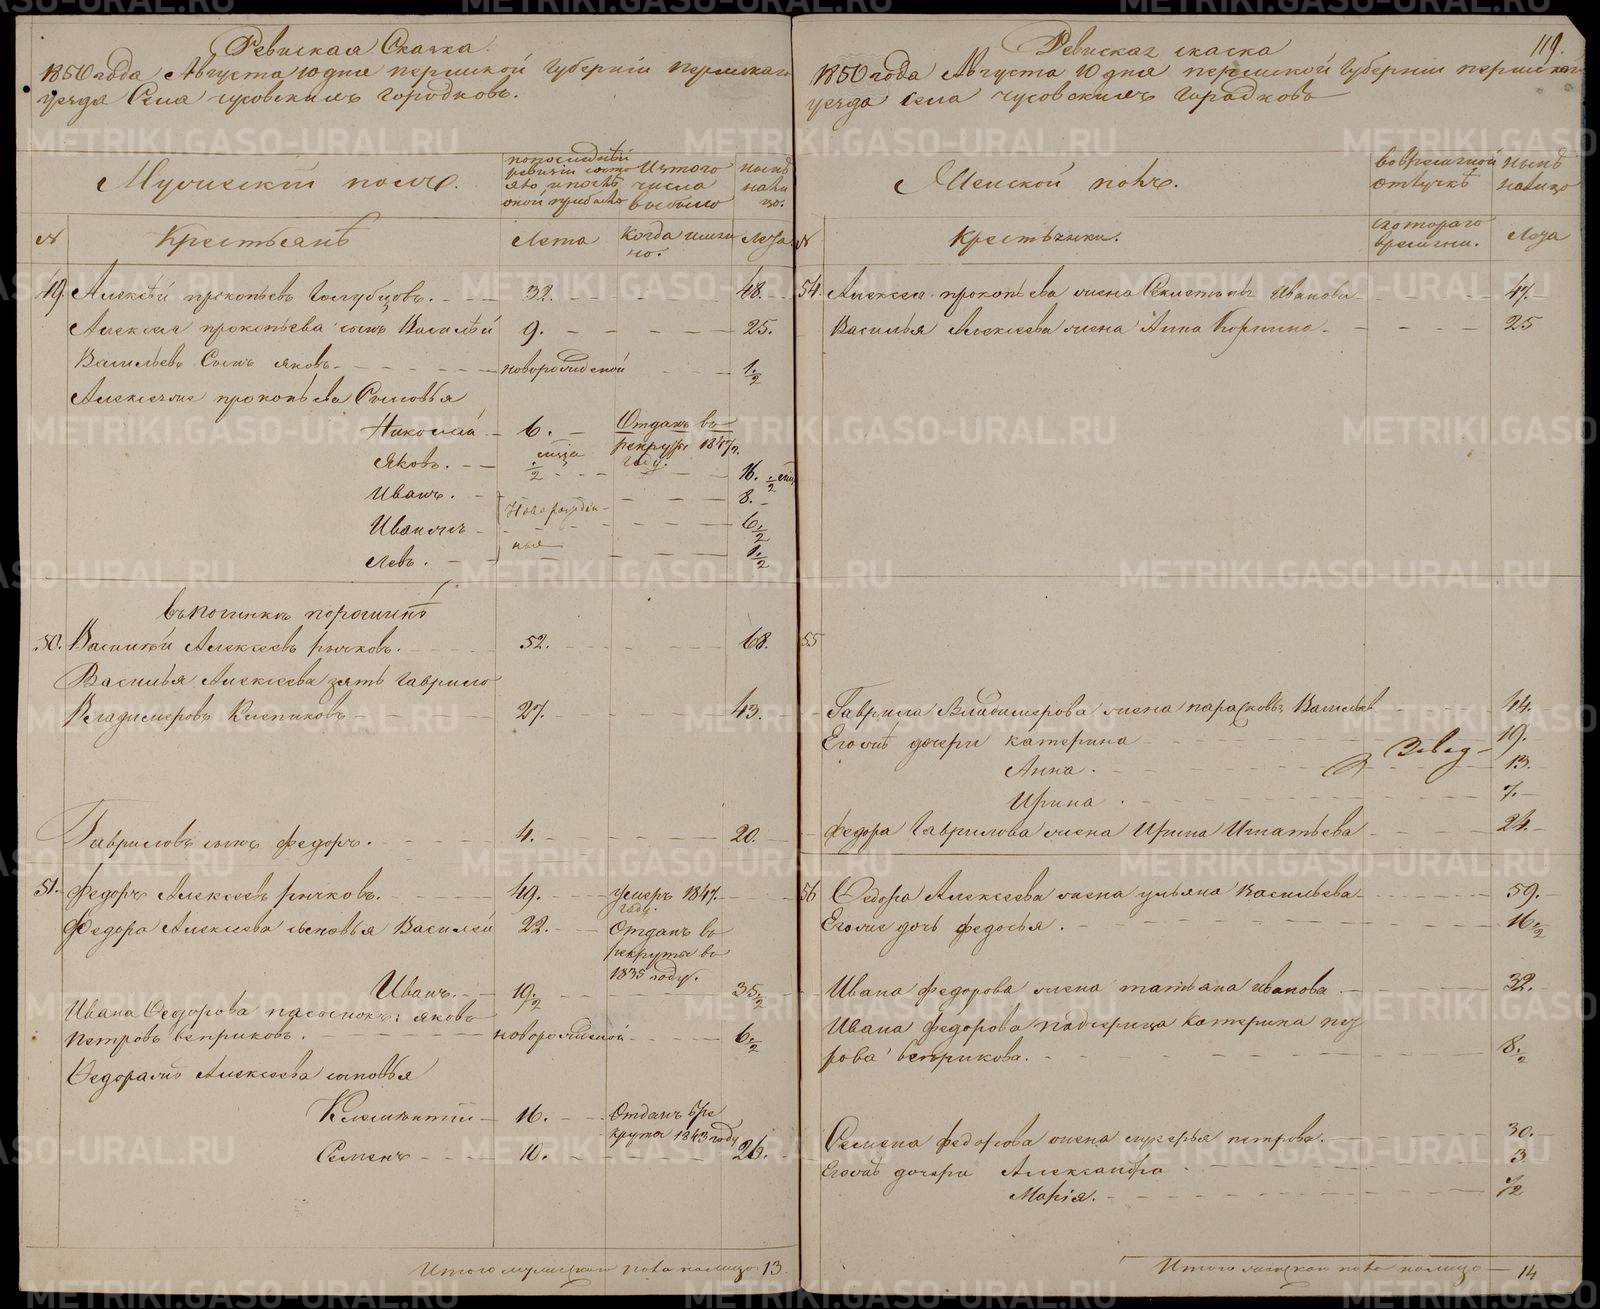 Ревиская Сказка.
1850 года Августа 10 дня пермской Губерніи пермскаго
уезда Села чусовскихъ Городковъ.
Мужескій полъ.
попоследней ревизіи состояло и после оной прибыло
Изтого числа выбыло
ныне налицо.
№
Крестьяне
Лета
Когда именно.
Лета
49. Алексей прокопьевъ Голубцовъ. 32. 48.
Алексея прокопьева сынъ Василей 9. 25.
Васильевъ Сынъ яковъ. новорожденой 1 1/2
Алексеяже прокопьева Сыновья
Николай 6. Отданъ в рекруты 1847 году.
Яковъ. 1/2 16. 1/2
Иванъ. 8.
Иванжъ Новорожденыя 6 1/2
Левъ. 1 1/2
въпочинке порошине
50. Василей Алексеевъ рычковъ. 52. 68.
Василья Алексеева зять Гаврило
Владимеровъ 27. 43.
Гавриловъ сынъ Федоръ. 4. 20.
51. Федоръ Алексеевъ рычковъ. 49. умеръ 1847 году.
Федора Алексеева сыновья Василей 22. Отданъ в рекруты в 1835 году.
Иванъ. 19 1/2 35 1/2
Ивана Федорова пасынокъ яковъ
петровъ веприковъ. новорожденой 6 1/2
Федораже Алексеева сыновья
Климентий 16. Отданъ в рекруты 1843 году
Семенъ 10. 26.
Итого мужеска пола налицо 13
119.
Ревиская скаска
1850 года Августа 10 дня пермской Губерніи пермскаго
уезда села чусовскихъ Городковъ
Женской полъ.
вовременной отлучке
ныне налицо
№
Крестьянки.
скотораго времени.
Лета
54. Алексея прокопьева жена Иванова 47.
Василья Алексеева жена Анна 25
55
Гаврила Владимерова жена парасковья Васильев 44.
Егожъ дочери катерина 19.
Анна. 13.
Ирина. 7.
Федора Гаврилова жена Ирина Игнатьева 24.
56 Федора Алексеева жена ульяна Васильева 59.
Егоже дочь федосья. 16 1/2
Ивана федорова жена татьяна иванова 32.
Ивана федорова падчерица катерина пет
рова веприкова. 8 1/2
Семена федорова жена лукерья петрова. 30.
Егожъ дочери Александра 3.
Марія. 1/2
Итого женска пола налицо 14
METRIKI.GASO-URAL.RU